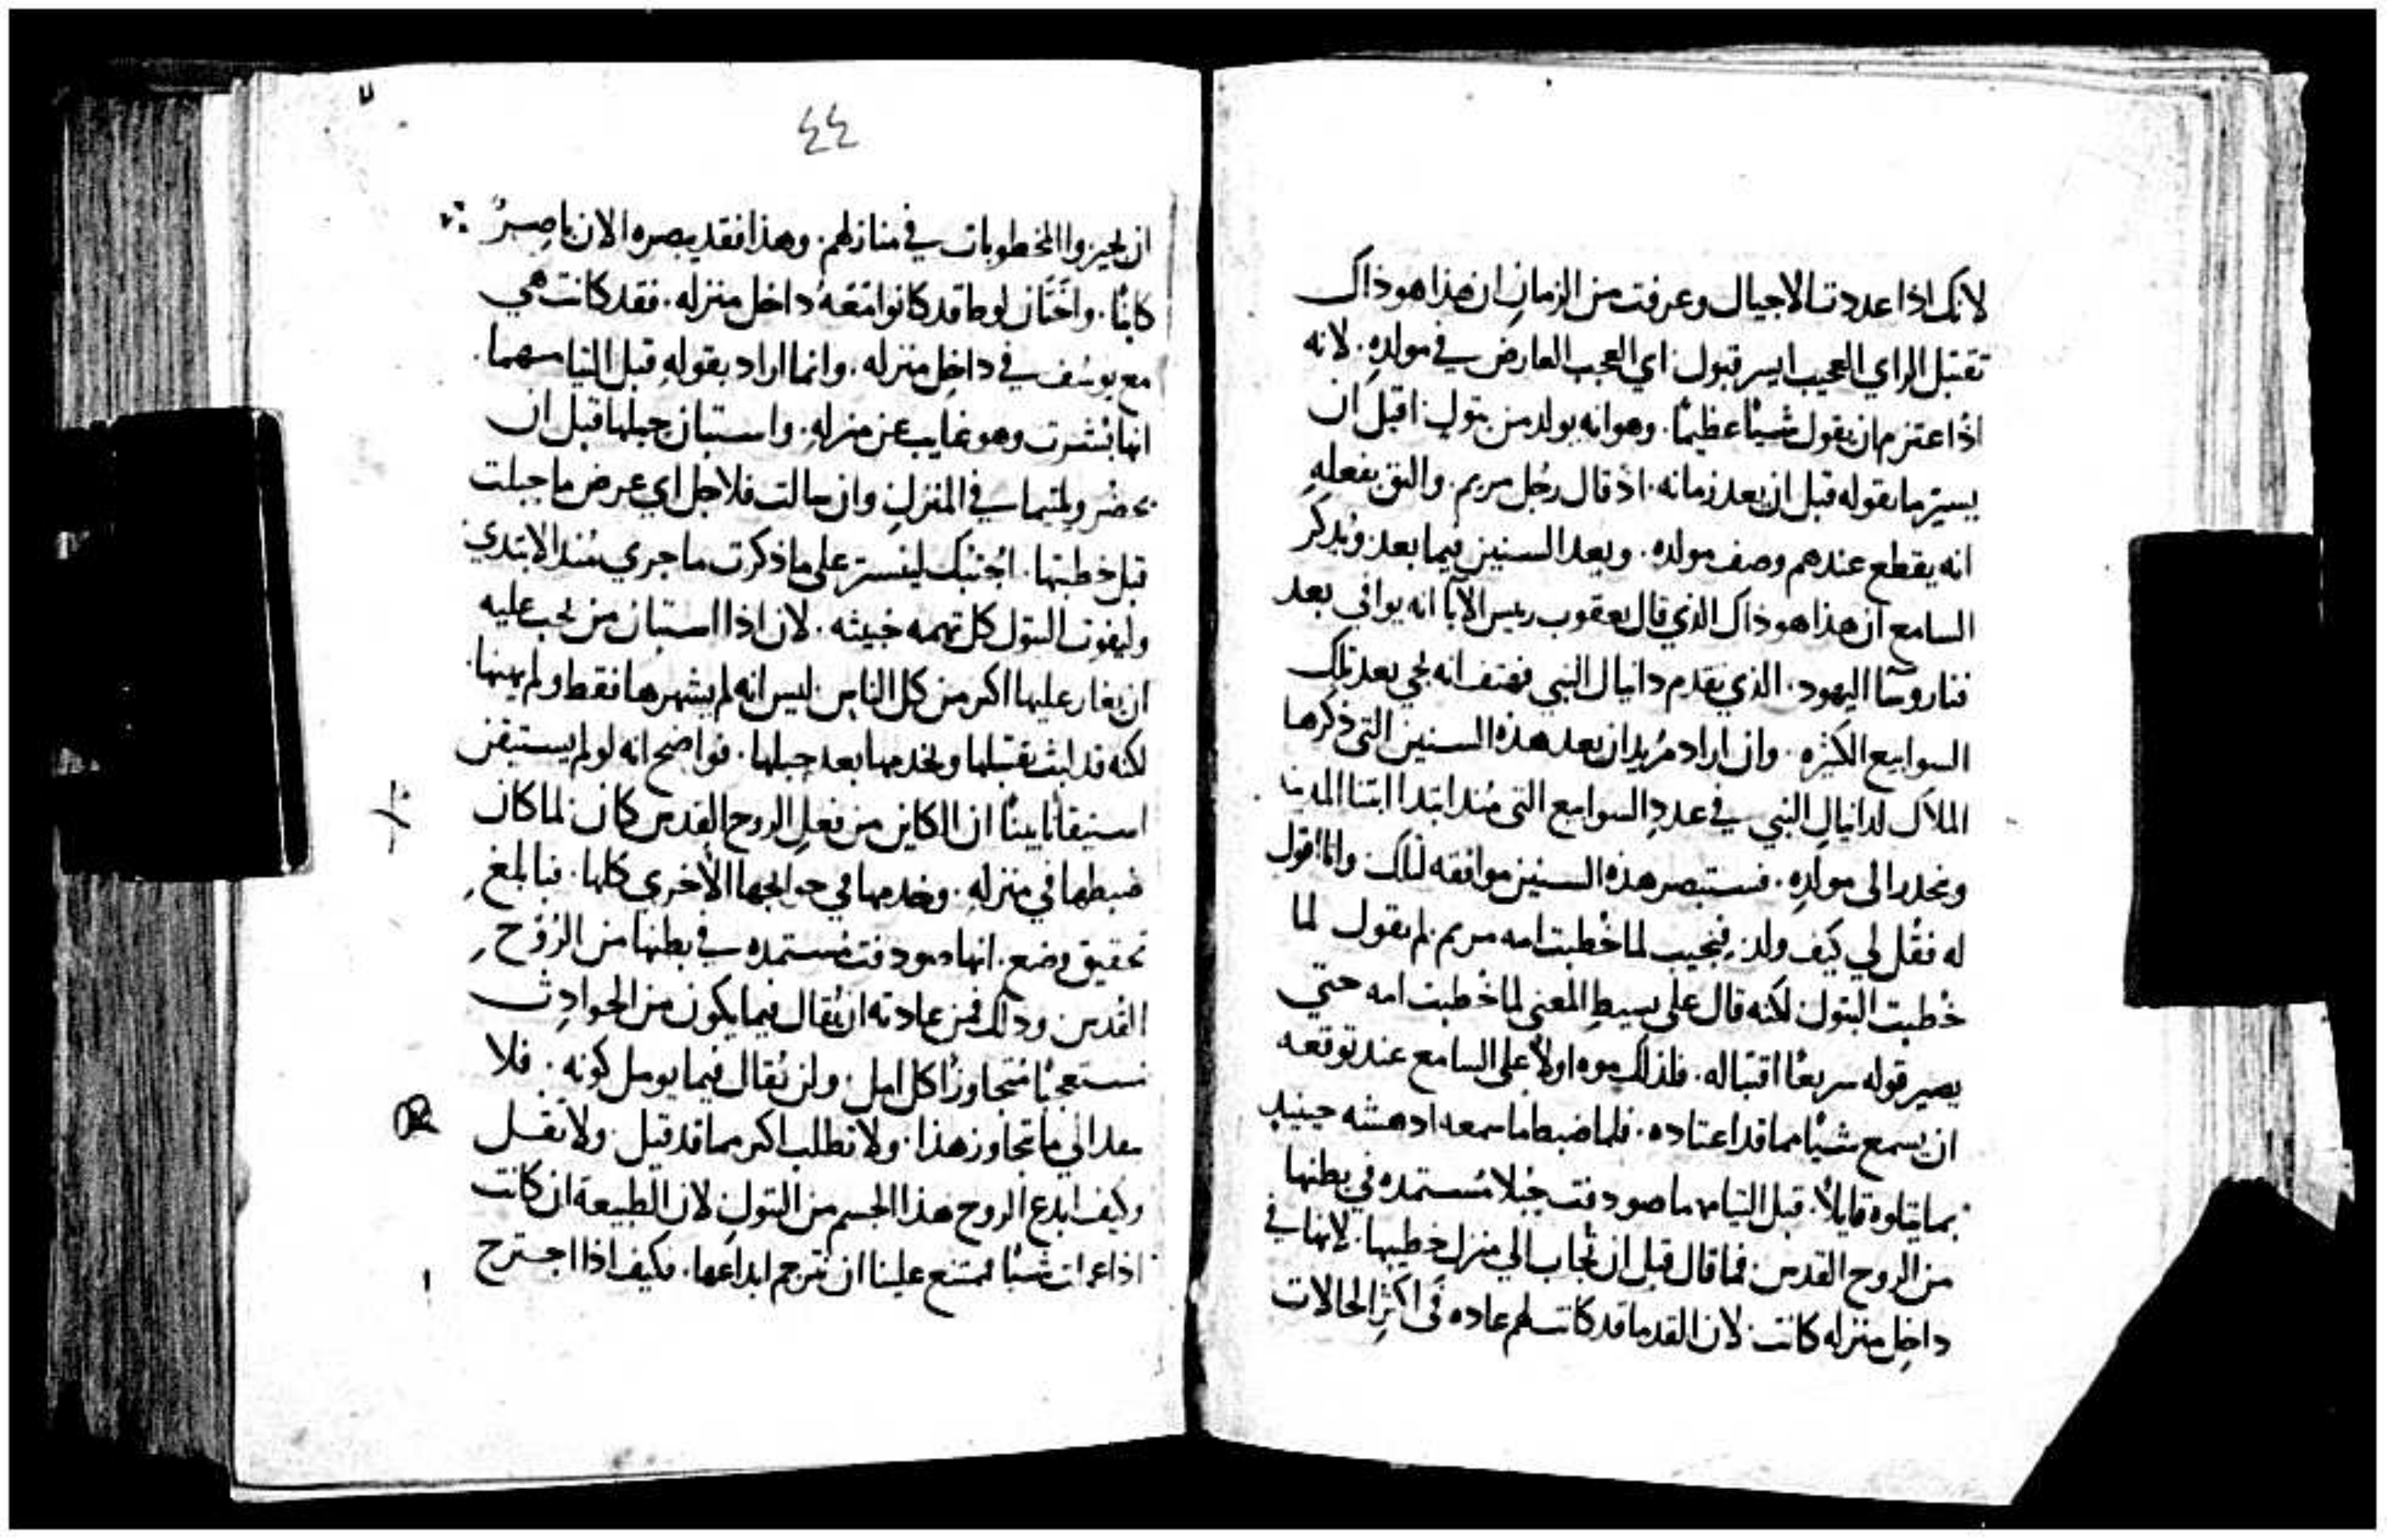 لانك اذا عددت الاجيال وعرفت من الزمان ان هذا هو ذاك
تقتبل الراي العجيب ايسر قبول اي العجب العارض في مولده. لانه
اذا عتزم ان يقول شيًا عظيمًا. وهو انه يولد من بتول اقبل ان
يستر ما يقوله قبل ان يعد زمانه. اذ قال رجل مريم. واليق بفعله
انه يقطع عندهم وصف مولده. ويعد السنين فيما بعد ويذكر
السامع ان هذا هو ذاك الذي قال يعقوب رييس الآبا انه يوافي بعد
فنا روسا اليهود. الذي تقدم دانيال النبي فهتف انه يجي بعد تلك
السوابيع الكثيره. وان اراد مريد ان يعد هذه السنين التي ذكرها
الملاك لدانيال النبي في عدد السوابيع التي منذ ابتدا ابتنا المدينه
وينحدر الى مولده. فستبصر هذه السنين موافقه لتلك. وانا اقول
له فقل لي كيف ولد. فيجيب لما خطبت امه مريم. لم يقول لما
خطبت البتول. لكنه قال على بسيط المعني لما خطبت امه حتي
يصير قوله سريعًا اقتباله. فلذلك موه اولًا على السامع عند توقعه
ان يسمع شيًا مما قد اعتاده. فلما ضبط ما سمعه ادهشه حينيد
بما يتلوه قايلًا. قبل التيامهما صودفت حبلا مستمده في بطنها
من الروح القدس. فما قال قبل ان تجاب الي منزل خطيبها. لانها في
داخل منزله كانت. لان القدما قد كانت لهم عاده في اكثر الحالات
٤٤
ان يحيزوا المخطوبات في منازلهم. وهذا فقد يبصره الان باصر
كاينًا. واختان لوط قد كانوا معه داخل منزله. فقد كانت هي
مع يوسف في داخل منزله. وانما اراد بقوله قبل التيامهما.
انها بشرت وهو غايب عن منزله. واستبان حبلها قبل ان
يحضر ويلتيما في المنزل. وان سالت فلاجل اي عرض ما حبلت
قبل خطبتها. اجبتك ليستتر على ما ذكرت ما جري منذ الابتدي
وليفوت البتول كل تهمه خبيثه. لان اذا استبان من يجب عليه
ان يغار عليها اكثر من كل الناس. ليس انه لم يشهرها فقط ولم يهنها.
لكنه قد لبث يقتبلها ويخدمها بعد حبلها. فواضح انه لو لم يستيقن
استيقانًا بينًا ان الكاين من فعل الروح القدس كان. لما كان
ضبطها في منزله. وخدمها في حوايجها الأخري كلها. فبابلغ
تحقيق وضع. انها صودفت مستمده في بطنها من الروح
القدس. وذلك فمن عادته ان يقال فيما يكون من الحوادث
مستعجبًا متجاوزًا كل امل. ولن يقال فيما يومل كونه. فلا
تعدا الي ما تجاوز هذا. ولا تطلب اكثر مما قد قيل. ولا تقل
وكيف ابدع الروح هذا الجسم من البتول. لان الطبيعة ان كانت
اذا عملت شيًا يمتنع علينا ان نترجم ابداعها. فكيف اذا اجترح